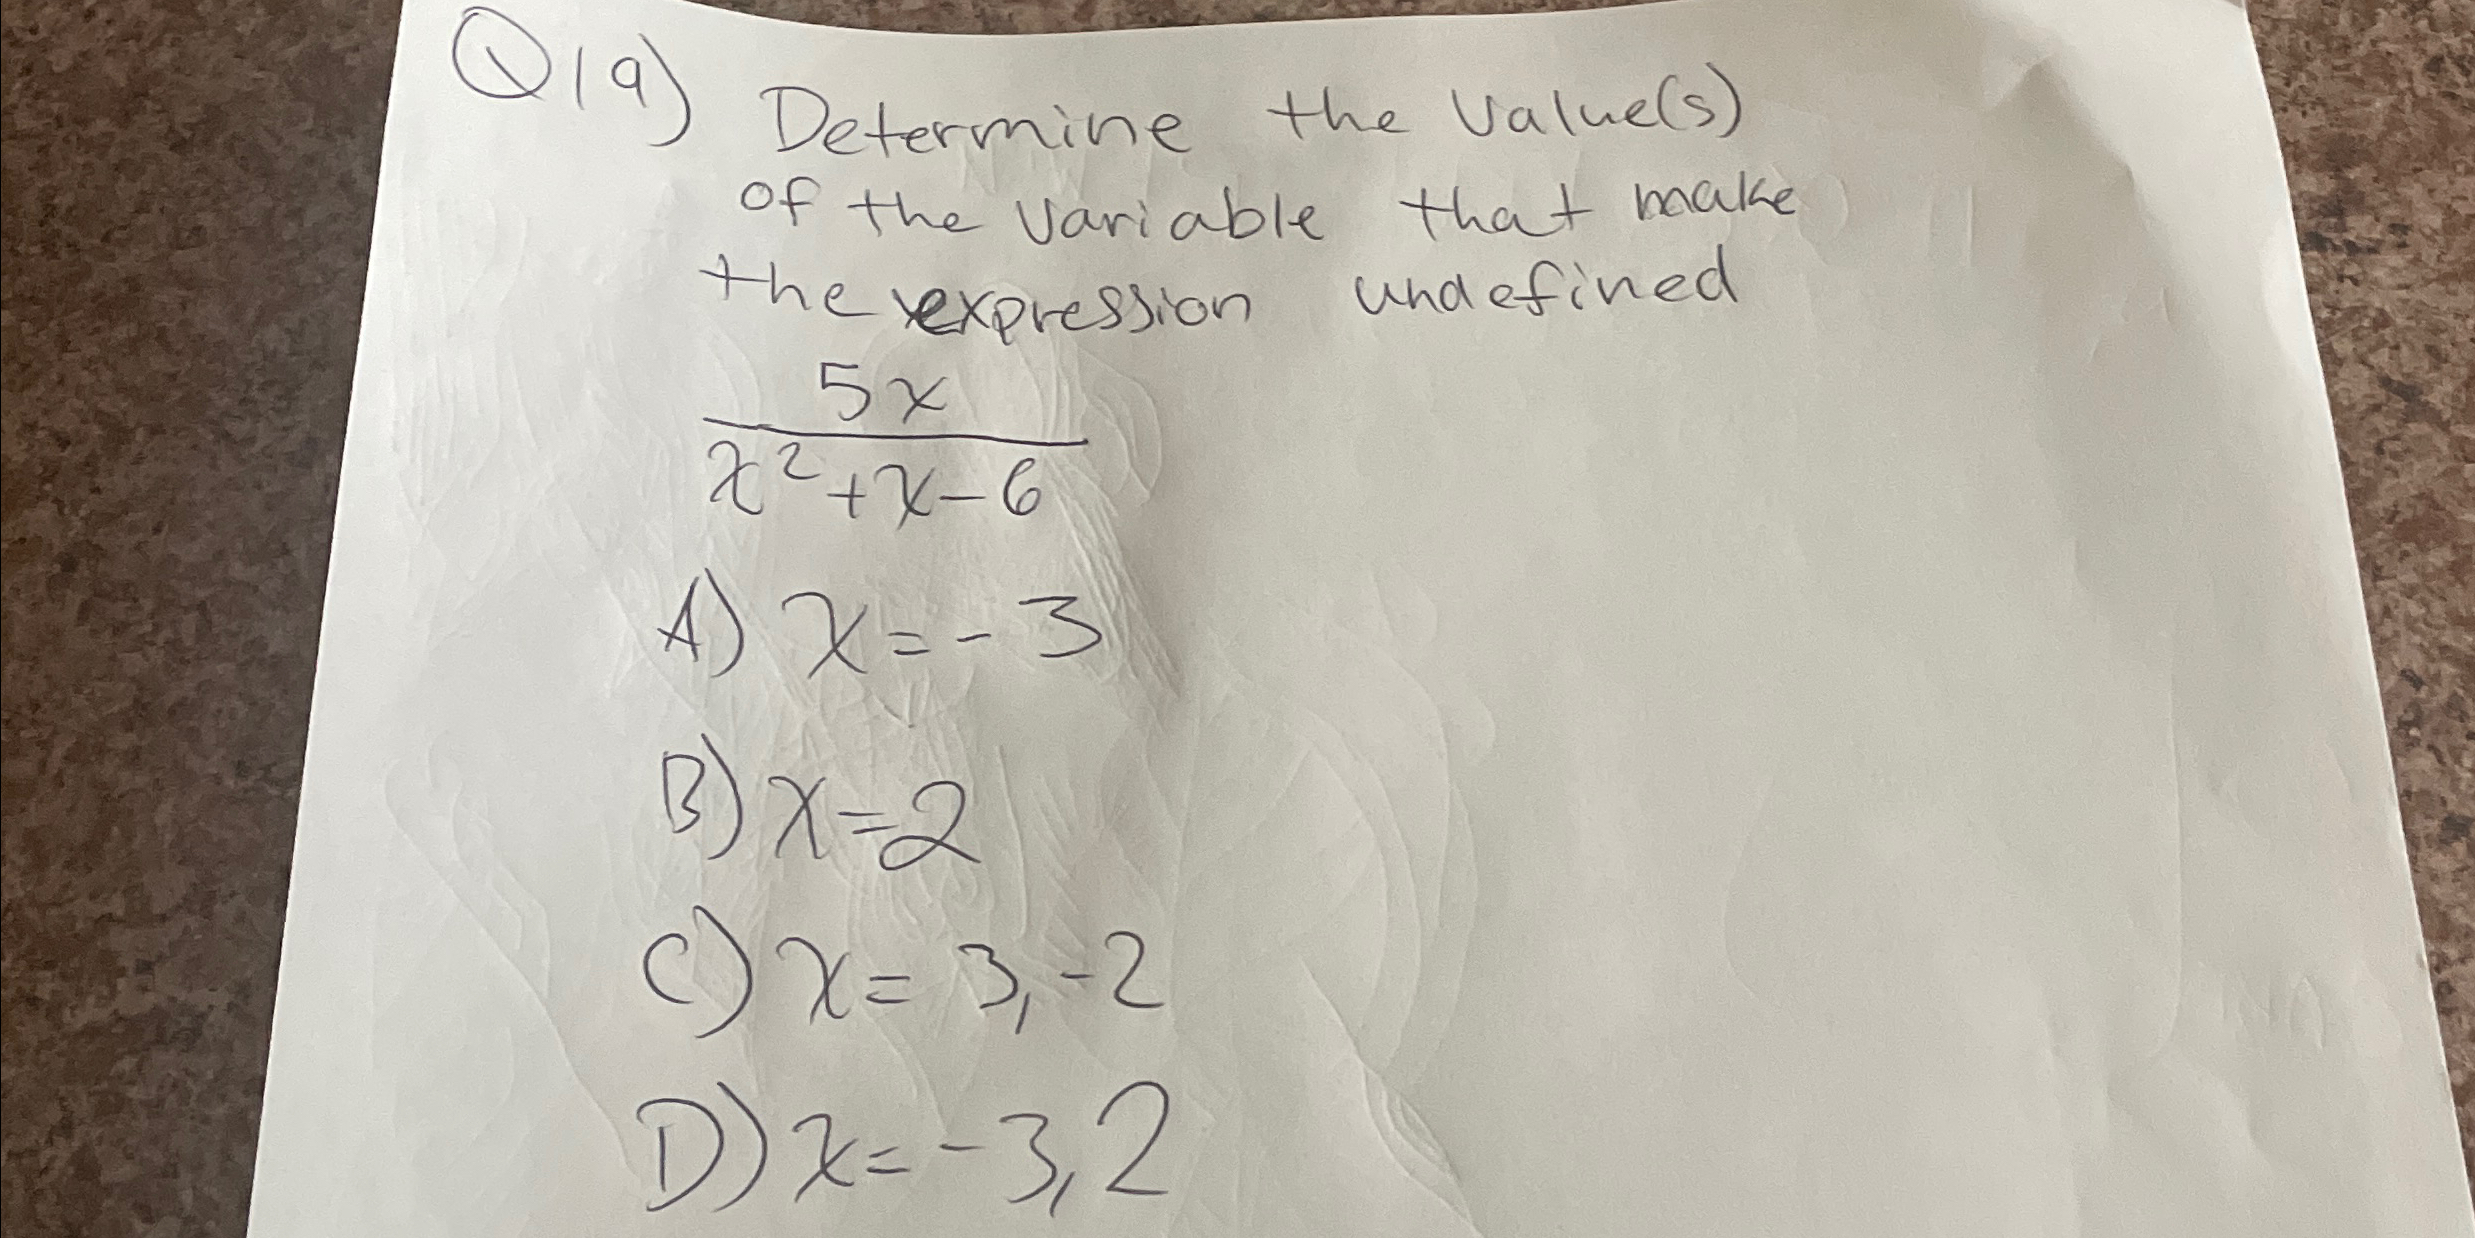 Q19) Determine the value(s)
of the variable that make
the expression undefined
5x
x²+x-6
A) x=-3
B) x=2
C) x= 3,-2
D) x=-3,2